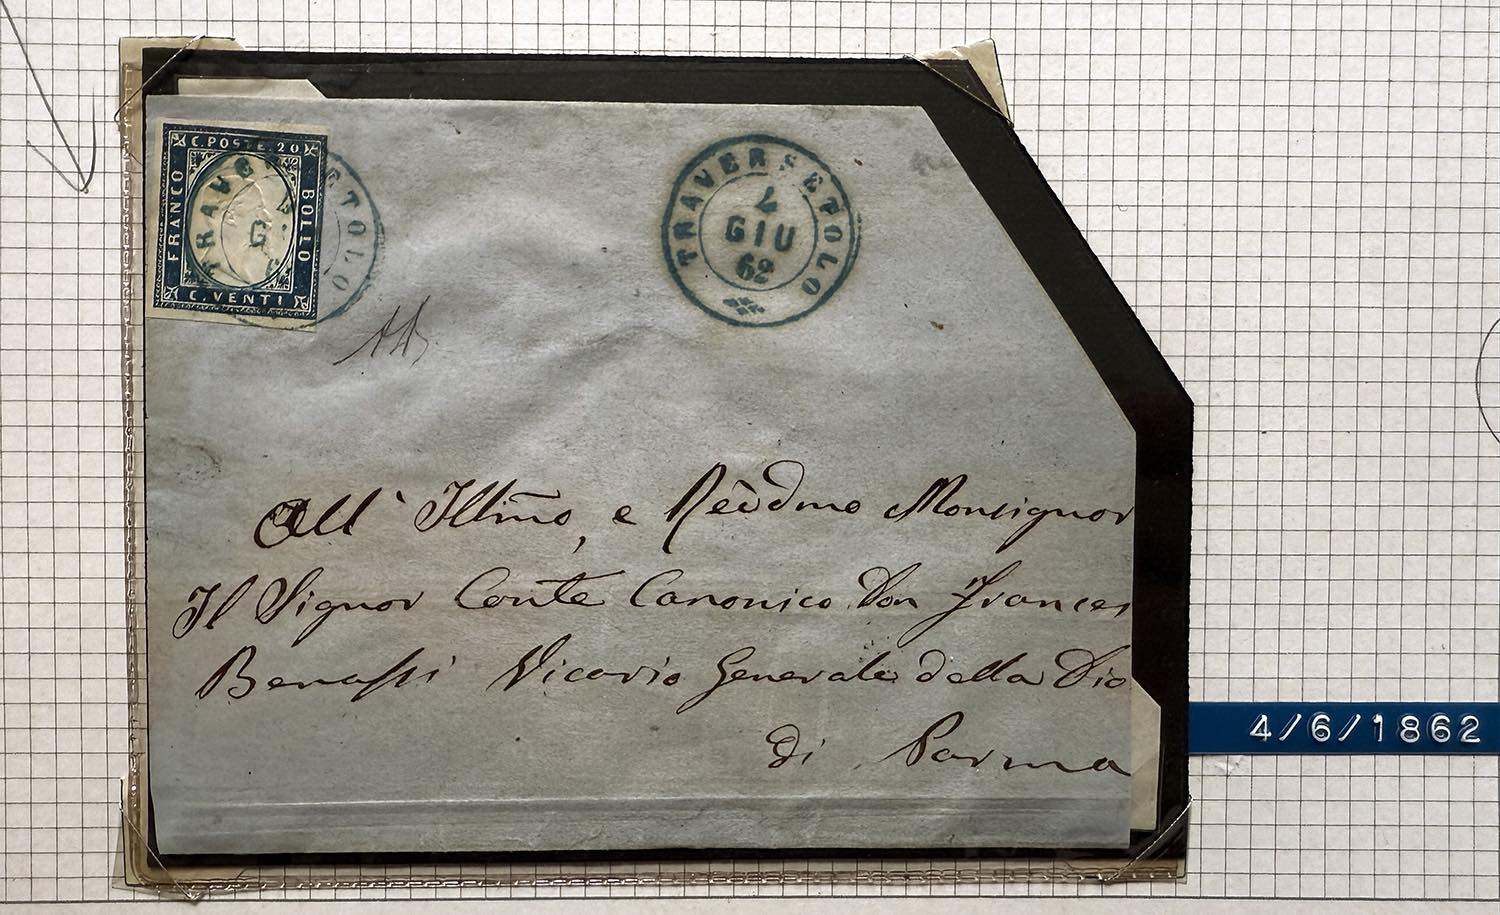 C. POSTE 20
FRANCO
BOLLO
C. VENTI
TRAVERSETOLO
G
6
TRAVERSETOLO
4
GIU
62
All' Illm̃o, e Rev̀dmo Monsignor
Il Signor Conte Canonico Don Frances
Benassi Vicario Generale della Dio
di Parma
4/6/1862